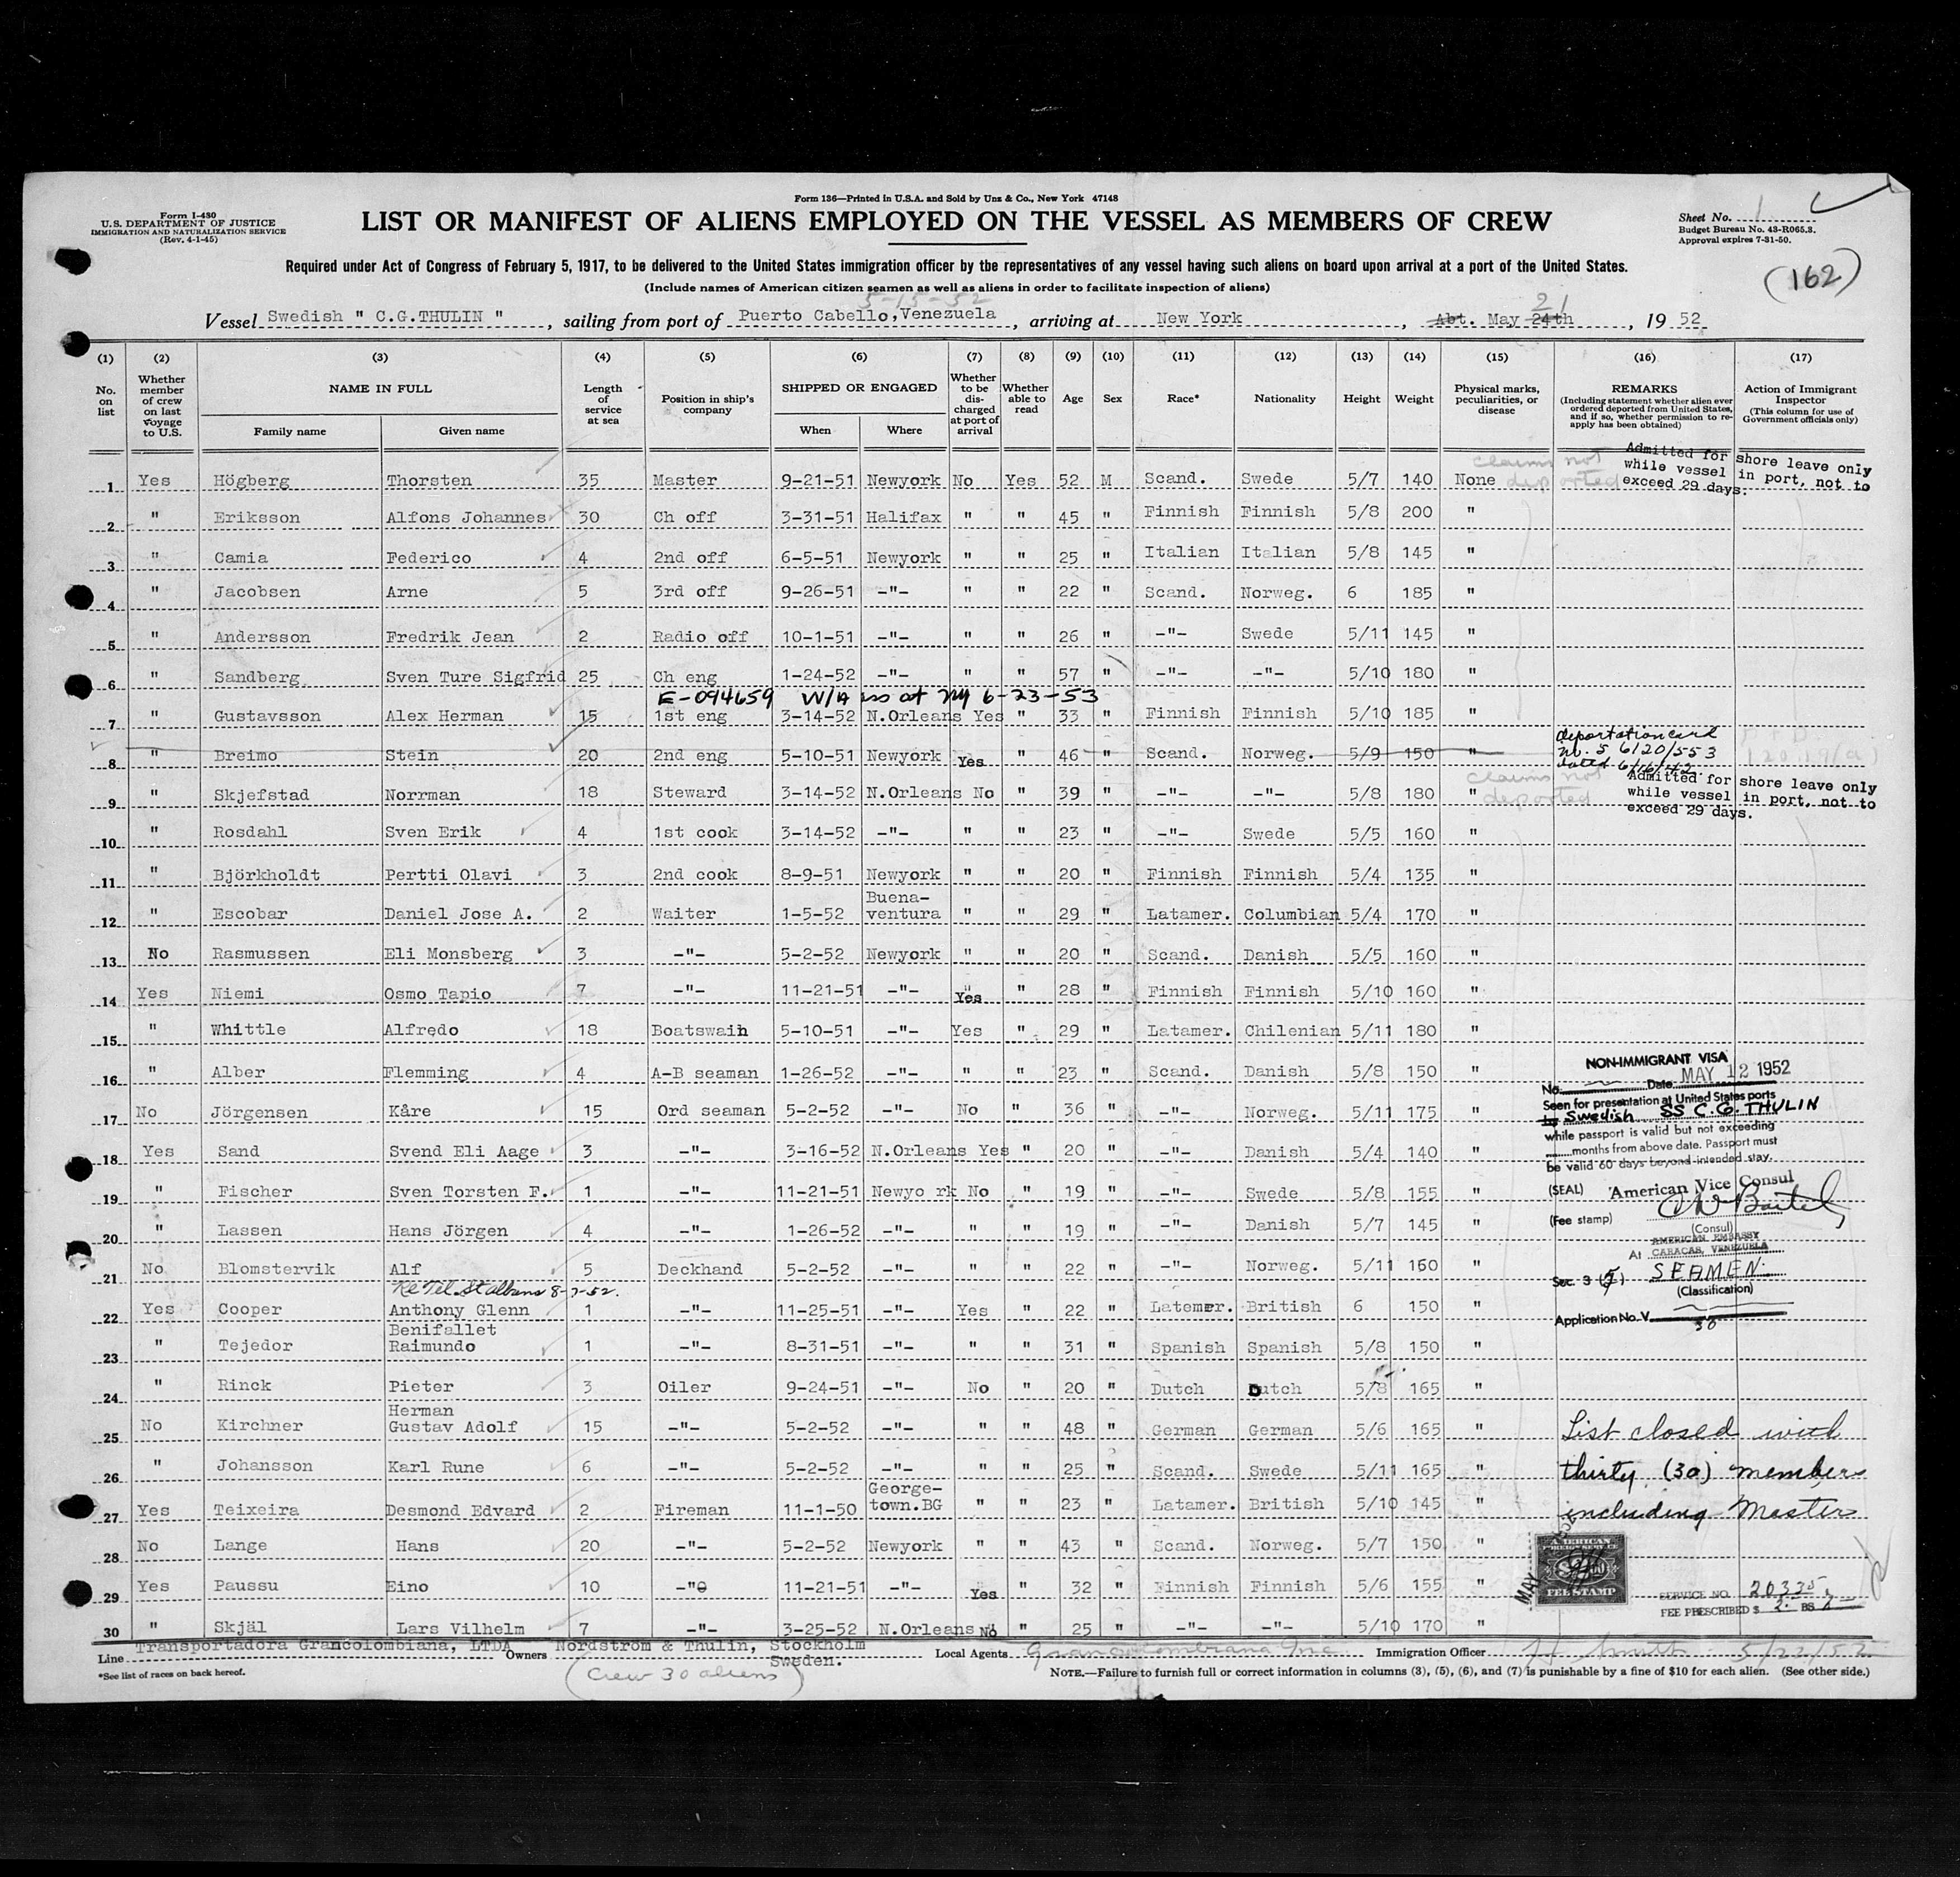 Form 136—Printed in U.S.A. and Sold by Unz & Co., New York 47148
Form I-480
U.S. DEPARTMENT OF JUSTICE
IMMIGRATION AND NATURALIZATION SERVICE
(Rev. 4-1-45)
LIST OR MANIFEST OF ALIENS EMPLOYED ON THE VESSEL AS MEMBERS OF CREW
Sheet No. 1
Budget Bureau No. 43-R065.3.
Approval expires 7-31-50.
Required under Act of Congress of February 5, 1917, to be delivered to the United States immigration officer by the representatives of any vessel having such aliens on board upon arrival at a port of the United States.
(Include names of American citizen seamen as well as aliens in order to facilitate inspection of aliens)
(162)
5-15-52
21
Vessel Swedish " C.G.THULIN ", sailing from port of Puerto Cabello,Venezuela, arriving at New York, Abt. May 24th, 19 52
(1) (2) (3) (4) (5) (6) (7) (8) (9) (10) (11) (12) (13) (14) (15) (16) (17)
No. on list
Whether member of crew on last voyage to U.S.
NAME IN FULL
Family name
Given name
Length of service at sea
Position in ship's company
SHIPPED OR ENGAGED
When
Where
Whether to be discharged at port of arrival
Whether able to read
Age
Sex
Race*
Nationality
Height
Weight
Physical marks, peculiarities, or disease
REMARKS
(Including statement whether alien ever ordered deported from United States, and if so, whether permission to reapply has been obtained)
Action of Immigrant Inspector
(This column for use of Government officials only)
claims not deported
Admitted for shore leave only
while vessel in port, not to
exceed 29 days.
1 Yes Högberg Thorsten 35 Master 9-21-51 Newyork No Yes 52 M Scand. Swede 5/7 140 None
2 " Eriksson Alfons Johannes 30 Ch off 3-31-51 Halifax " " 45 " Finnish Finnish 5/8 200 "
3 " Camia Federico 4 2nd off 6-5-51 Newyork " " 25 " Italian Italian 5/8 145 "
4 " Jacobsen Arne 5 3rd off 9-26-51 -"- " " 22 " Scand. Norweg. 6 185 "
5 " Andersson Fredrik Jean 2 Radio off 10-1-51 -"- " " 26 " -"- Swede 5/11 145 "
6 " Sandberg Sven Ture Sigfrid 25 Ch eng 1-24-52 -"- " " 57 " -"- -"- 5/10 180 "
E-094659 W/A iss at NY 6-23-53
7 " Gustavsson Alex Herman 15 1st eng 3-14-52 N.Orleans Yes " 33 " Finnish Finnish 5/10 185 "
8 " Breimo Stein 20 2nd eng 5-10-51 Newyork Yes " 46 " Scand. Norweg. 5/9 150 "
deportation card
no. S 6120/553
dated 6/16/42.
claims not deported
Admitted for shore leave only
while vessel in port, not to
exceed 29 days.
9 " Skjefstad Norrman 18 Steward 3-14-52 N.Orleans No " 39 " -"- -"- 5/8 180 "
10 " Rosdahl Sven Erik 4 1st cook 3-14-52 -"- " " 23 " -"- Swede 5/5 160 "
11 " Björkholdt Pertti Olavi 3 2nd cook 8-9-51 Newyork " " 20 " Finnish Finnish 5/4 135 "
12 " Escobar Daniel Jose A. 2 Waiter 1-5-52 Buena-ventura " " 29 " Latamer. Columbian 5/4 170 "
13 No Rasmussen Eli Monsberg 3 -"- 5-2-52 Newyork " " 20 " Scand. Danish 5/5 160 "
14 Yes Niemi Osmo Tapio 7 -"- 11-21-51 -"- Yes " 28 " Finnish Finnish 5/10 160 "
15 " Whittle Alfredo 18 Boatswain 5-10-51 -"- Yes " 29 " Latamer. Chilenian 5/11 180 "
16 " Alber Flemming 4 A-B seaman 1-26-52 -"- " " 23 " Scand. Danish 5/8 150 "
17 No Jörgensen Kåre 15 Ord seaman 5-2-52 -"- No " 36 " -"- Norweg. 5/11 175 "
18 Yes Sand Svend Eli Aage 3 -"- 3-16-52 N.Orleans Yes " 20 " -"- Danish 5/4 140 "
19 " Fischer Sven Torsten F. 1 -"- 11-21-51 Newyo rk No " 19 " -"- Swede 5/8 155 "
20 " Lassen Hans Jörgen 4 -"- 1-26-52 -"- " " 19 " -"- Danish 5/7 145 "
21 No Blomstervik Alf 5 Deckhand 5-2-52 -"- " " 22 " -"- Norweg. 5/11 160 "
Re Tel. St albans 8-7-52.
22 Yes Cooper Anthony Glenn 1 -"- 11-25-51 -"- Yes " 22 " Latemer. British 6 150 "
23 " Tejedor Benifallet Raimundo 1 -"- 8-31-51 -"- " " 31 " Spanish Spanish 5/8 150 "
24 " Rinck Pieter 3 Oiler 9-24-51 -"- No " 20 " Dutch Dutch 5/8 165 "
25 No Kirchner Herman Gustav Adolf 15 -"- 5-2-52 -"- " " 48 " German German 5/6 165 "
26 " Johansson Karl Rune 6 -"- 5-2-52 -"- " " 25 " Scand. Swede 5/11 165 "
27 Yes Teixeira Desmond Edvard 2 Fireman 11-1-50 George-town.BG " " 23 " Latamer. British 5/10 145 "
28 No Lange Hans 20 -"- 5-2-52 Newyork " " 43 " Scand. Norweg. 5/7 150 "
29 Yes Paussu Eino 10 -"- 11-21-51 -"- Yes " 32 " Finnish Finnish 5/6 155 "
30 " Skjäl Lars Vilhelm 7 -"- 3-25-52 N.Orleans No " 25 " -"- -"- 5/10 170 "
NON-IMMIGRANT VISA
No. Date MAY 12 1952
Seen for presentation at United States ports
by Swedish SS C.G. THULIN
while passport is valid but not exceeding
months from above date. Passport must
be valid 60 days beyond intended stay.
(SEAL) American Vice Consul
(Fee stamp)
(Consul)
AMERICAN EMBASSY
At CARACAS, VENEZUELA
Sec. 3 (5) SEAMEN
(Classification)
Application No. V
30
List closed with
thirty (30) members
including Master
AMERICAN
FOREIGN SERVICE
FEE STAMP
MAY
SERVICE NO. 20335
FEE PRESCRIBED $ 2.
Line Transportadora Grancolombiana, LTDA Owners Nordström & Thulin, Stockholm Sweden. Local Agents Grancolombiana Inc Immigration Officer Smith 5/22/52
*See list of races on back hereof.
(Crew 30 aliens)
NOTE.—Failure to furnish full or correct information in columns (3), (5), (6), and (7) is punishable by a fine of $10 for each alien. (See other side.)